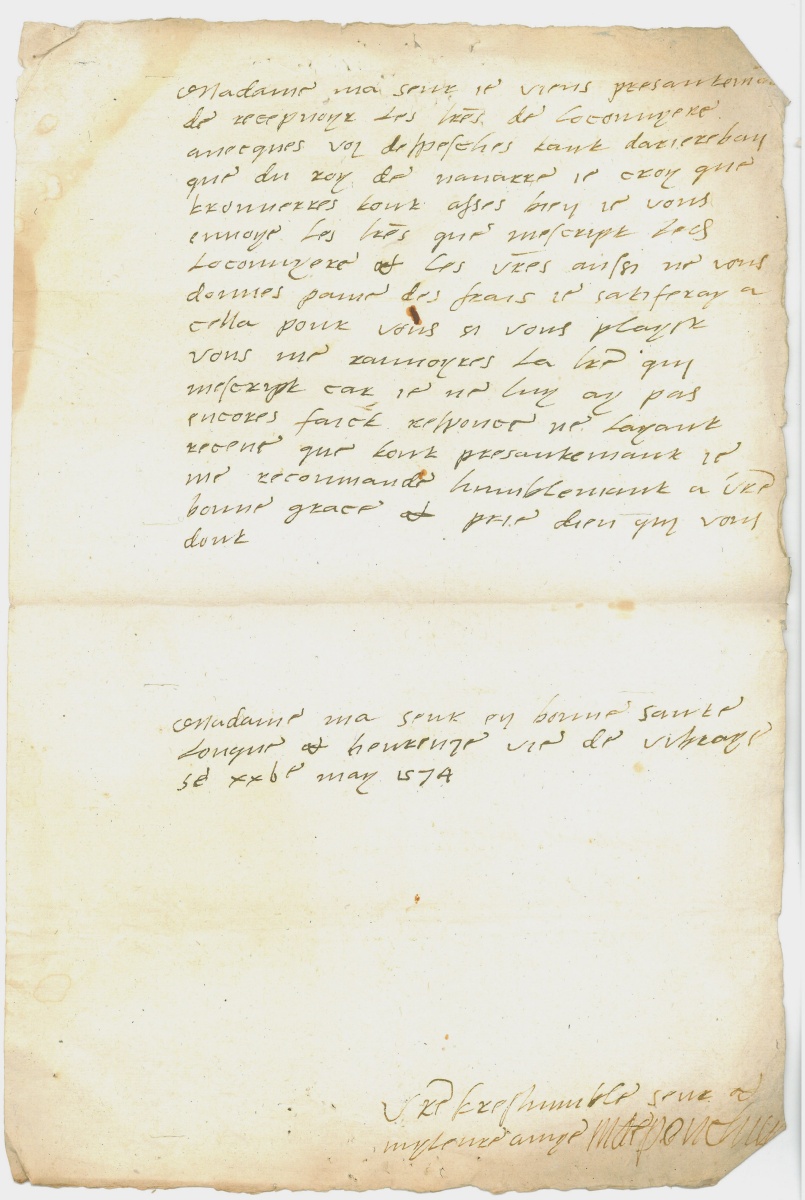 Madame ma seur ie viens presantemant
de recepuoyr les lr̃es de locouuyere
auecques voz despesches tant dariereban
que du roy de nauarre ie croy que
trouuerres tout asses bien ie vous
enuoye les lr̃es que mescript led
locouuyere et les vr̃es aussi ne vous
donnes paine des frais ie satiferay a
cella pour vous si vous playst
vous me ranuoyres la lr̃e qui
mescript car ie ne luy ay pas
encores faict responce ne layant
receue que tout presantemant ie
me recommande humblemant a vr̃e
bonne grace et prie dieu qui vous
dont
Madame ma seur en bonne sante
longue et heureuze vie de vibraye
se xxve may 1574
Vr̃e treshumble seur et
myleure amye